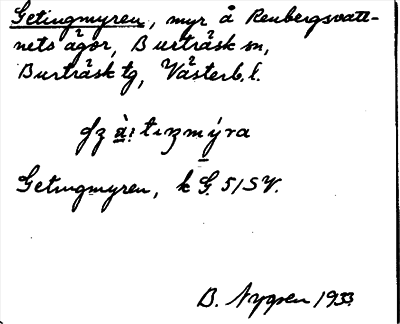 Getingmyren, myr å Renbergsvatt-
nets ägor, Burträsk sn,
Burträsk tg, Västerb. l.
Getingmyren, k G. 51 SV.
B. Nygren 1933